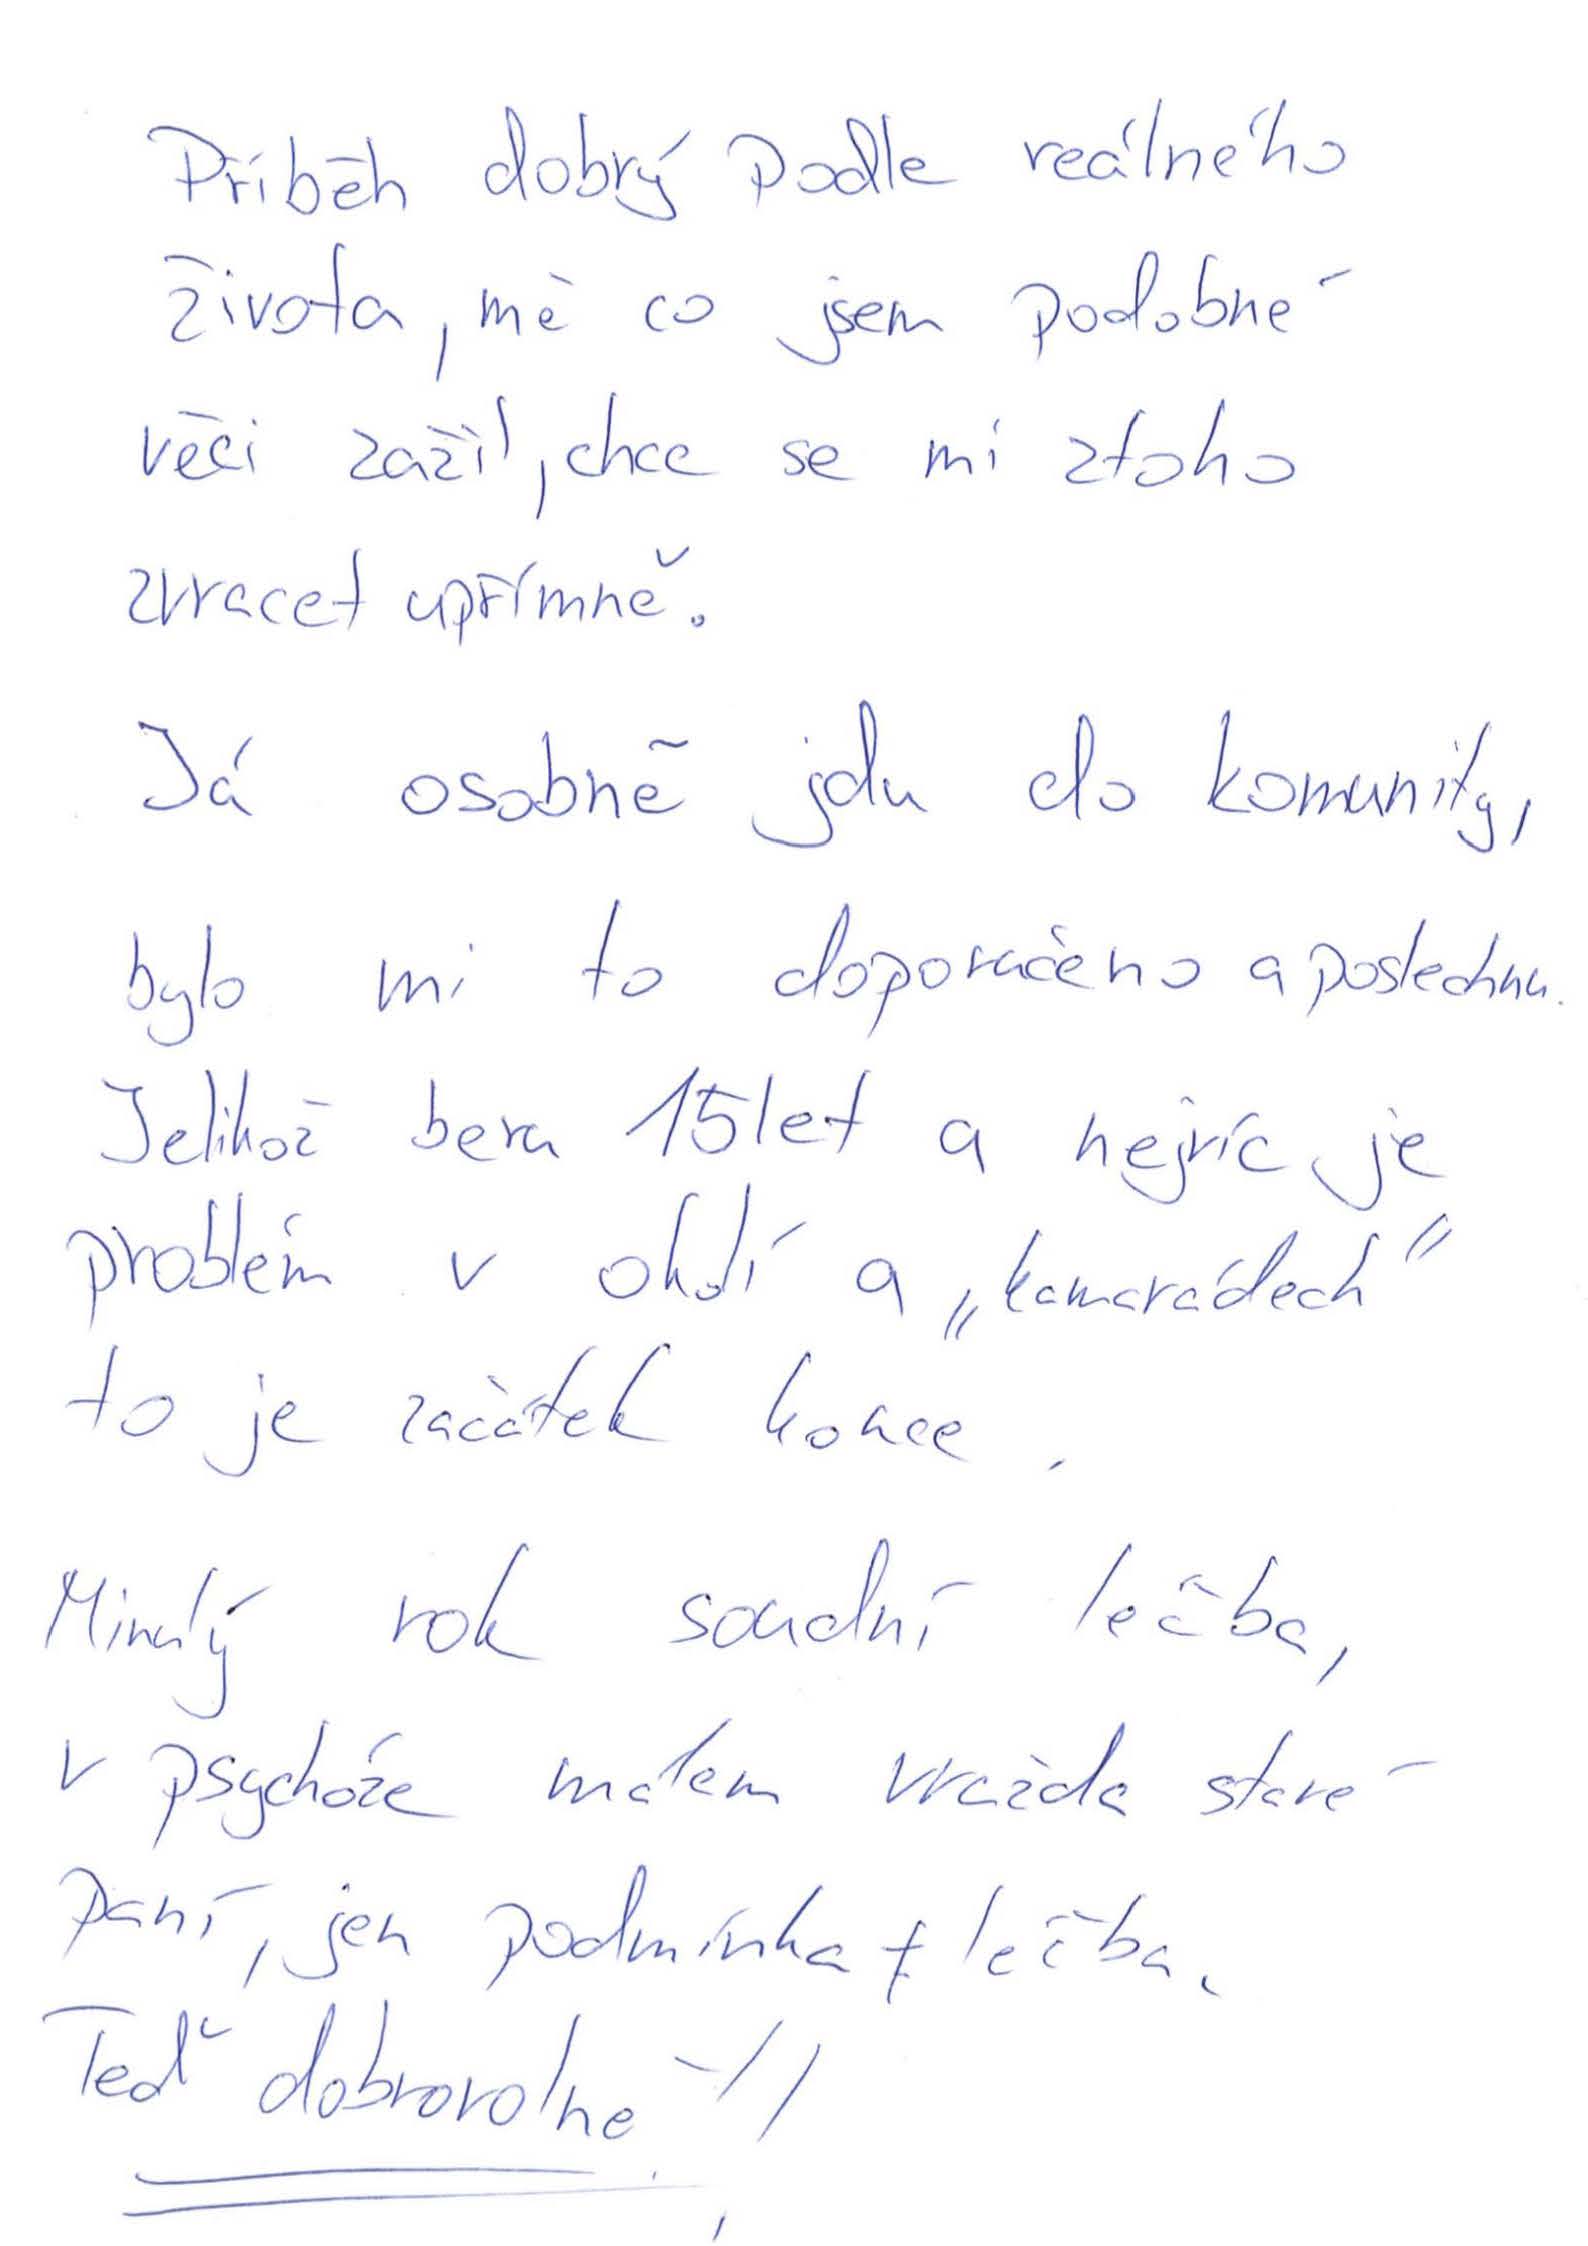 Příběh dobrý Podle reálného
života, mě co jsem podobné
věci zažil, chce se mi ztoho
zvracet upřímně.
Já osobně jdu do komunity,
bylo mi to doporučeno a poslechnu.
Jelikož beru 15 let a nejvíc je
problém v okolí a „kamarádech"
to je začátek konce.
Minulý rok soudní léčba,
v psychóze málem vražda staré
Paní, jen podmínka + léčba.
Teď dobrovolně!!